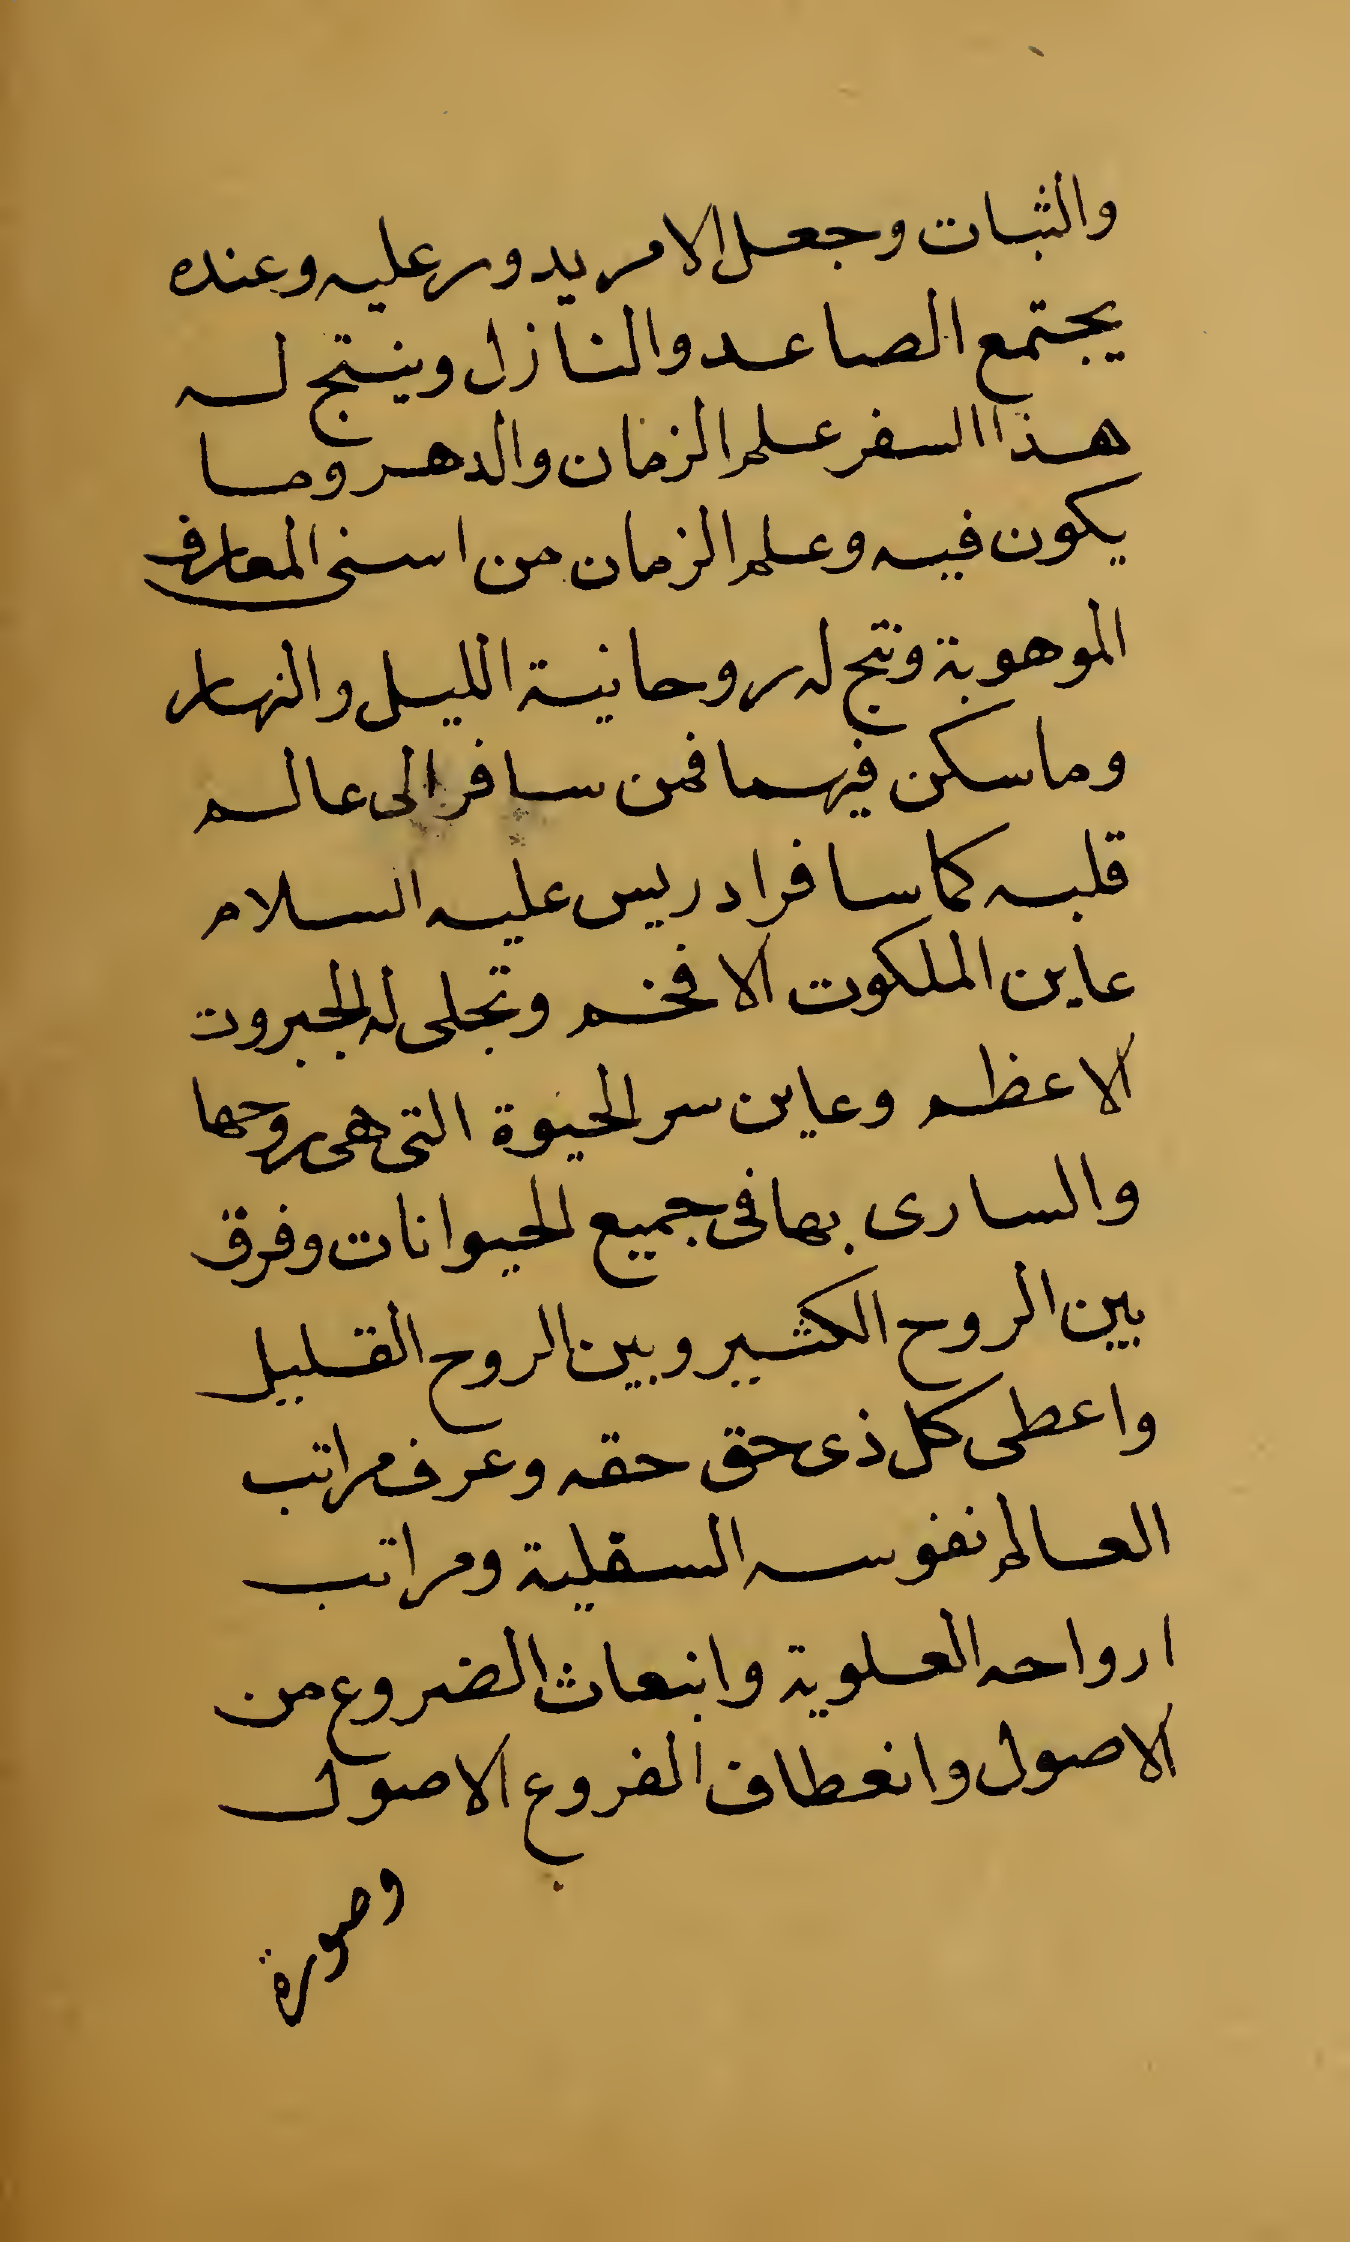 والثبات وجعل الامر يدور عليه وعنده
يجتمع الصاعد والنازل وينتج له
هذا السفر علم الزمان والدهر وما
يكون فيه وعلم الزمان من اسنى المعارف
الموهوبة ونتج له روحانية الليل والنهار
وما سكن فيهما فمن سافر الى عالم
قلبه كما سافر ادريس عليه السلام
عاين الملكوت الافخم وتجلى له الجبروت
الاعظم وعاين سر الحيوة التى هى روحها
والسارى بها فى جميع الحيوانات وفرق
بين الروح الكثير وبين الروح القليل
واعطى كل ذى حق حقه وعرف مراتب
العالم نفوسه السفلية ومراتب
ارواحه العلوية وانبعاث الضروع من
الاصول وانعطاف الفروع الاصول
وصورة